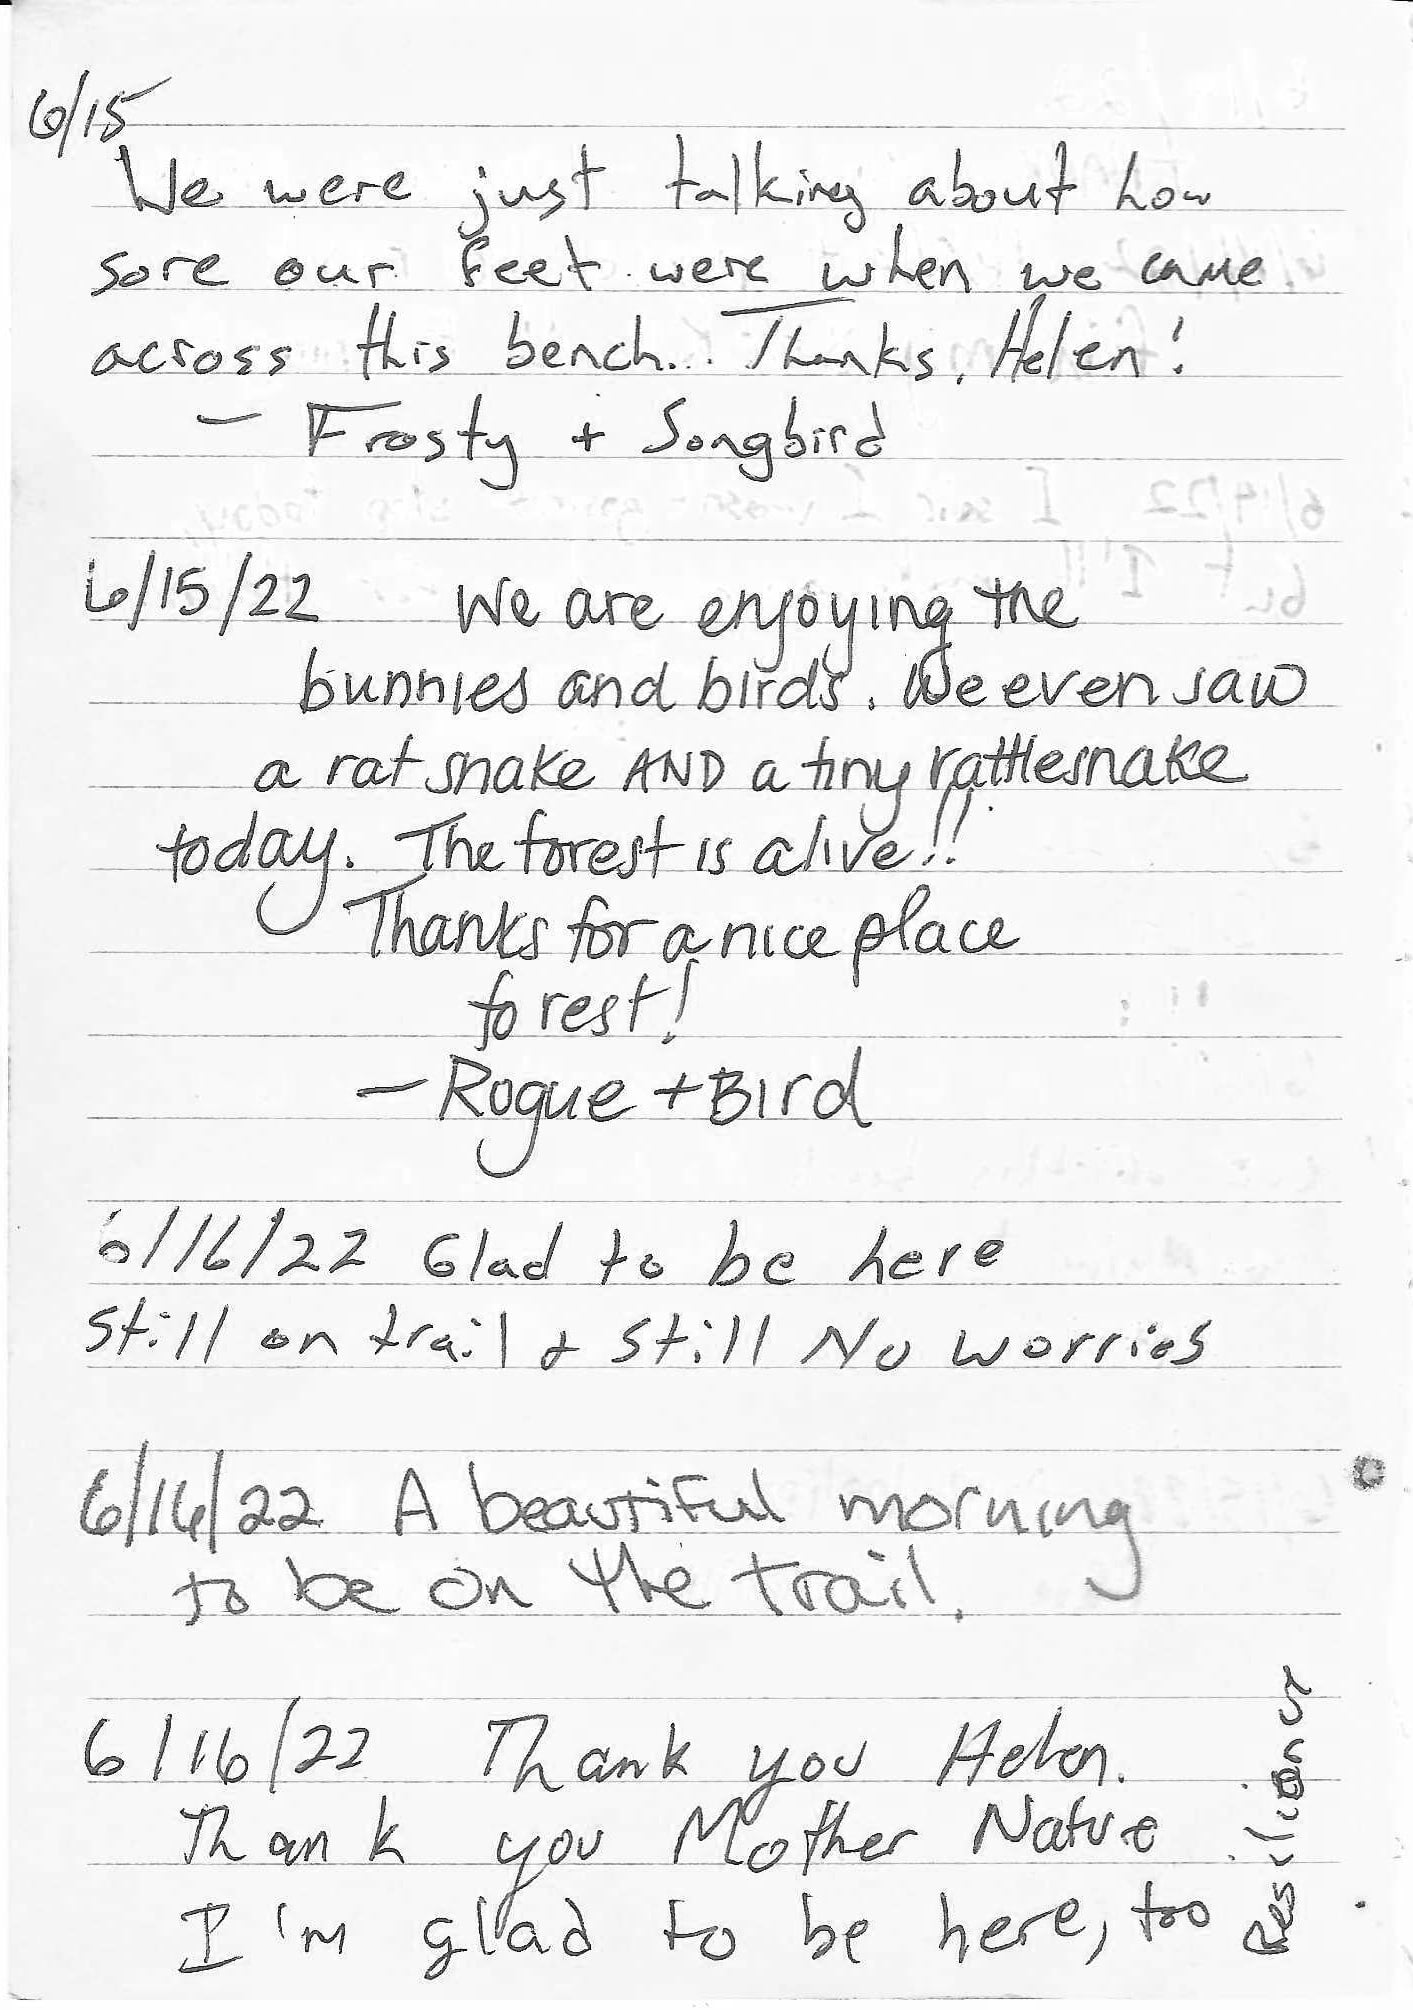 6/15
We were just talking about how
sore our feet were when we came
across this bench... Thanks, Helen!
– Frosty + Songbird
6/15/22 We are enjoying the
bunnies and birds. We even saw
a rat snake AND a tiny rattlesnake
today. The forest is alive!!
Thanks for a nice place
to rest!
– Rogue + Bird
6/16/22 Glad to be here
Still on trail & still No worries
6/16/22 A beautiful morning
to be on the trail.
6/16/22 Thank you Helen.
Thank you Mother Nature
I'm glad to be here, too